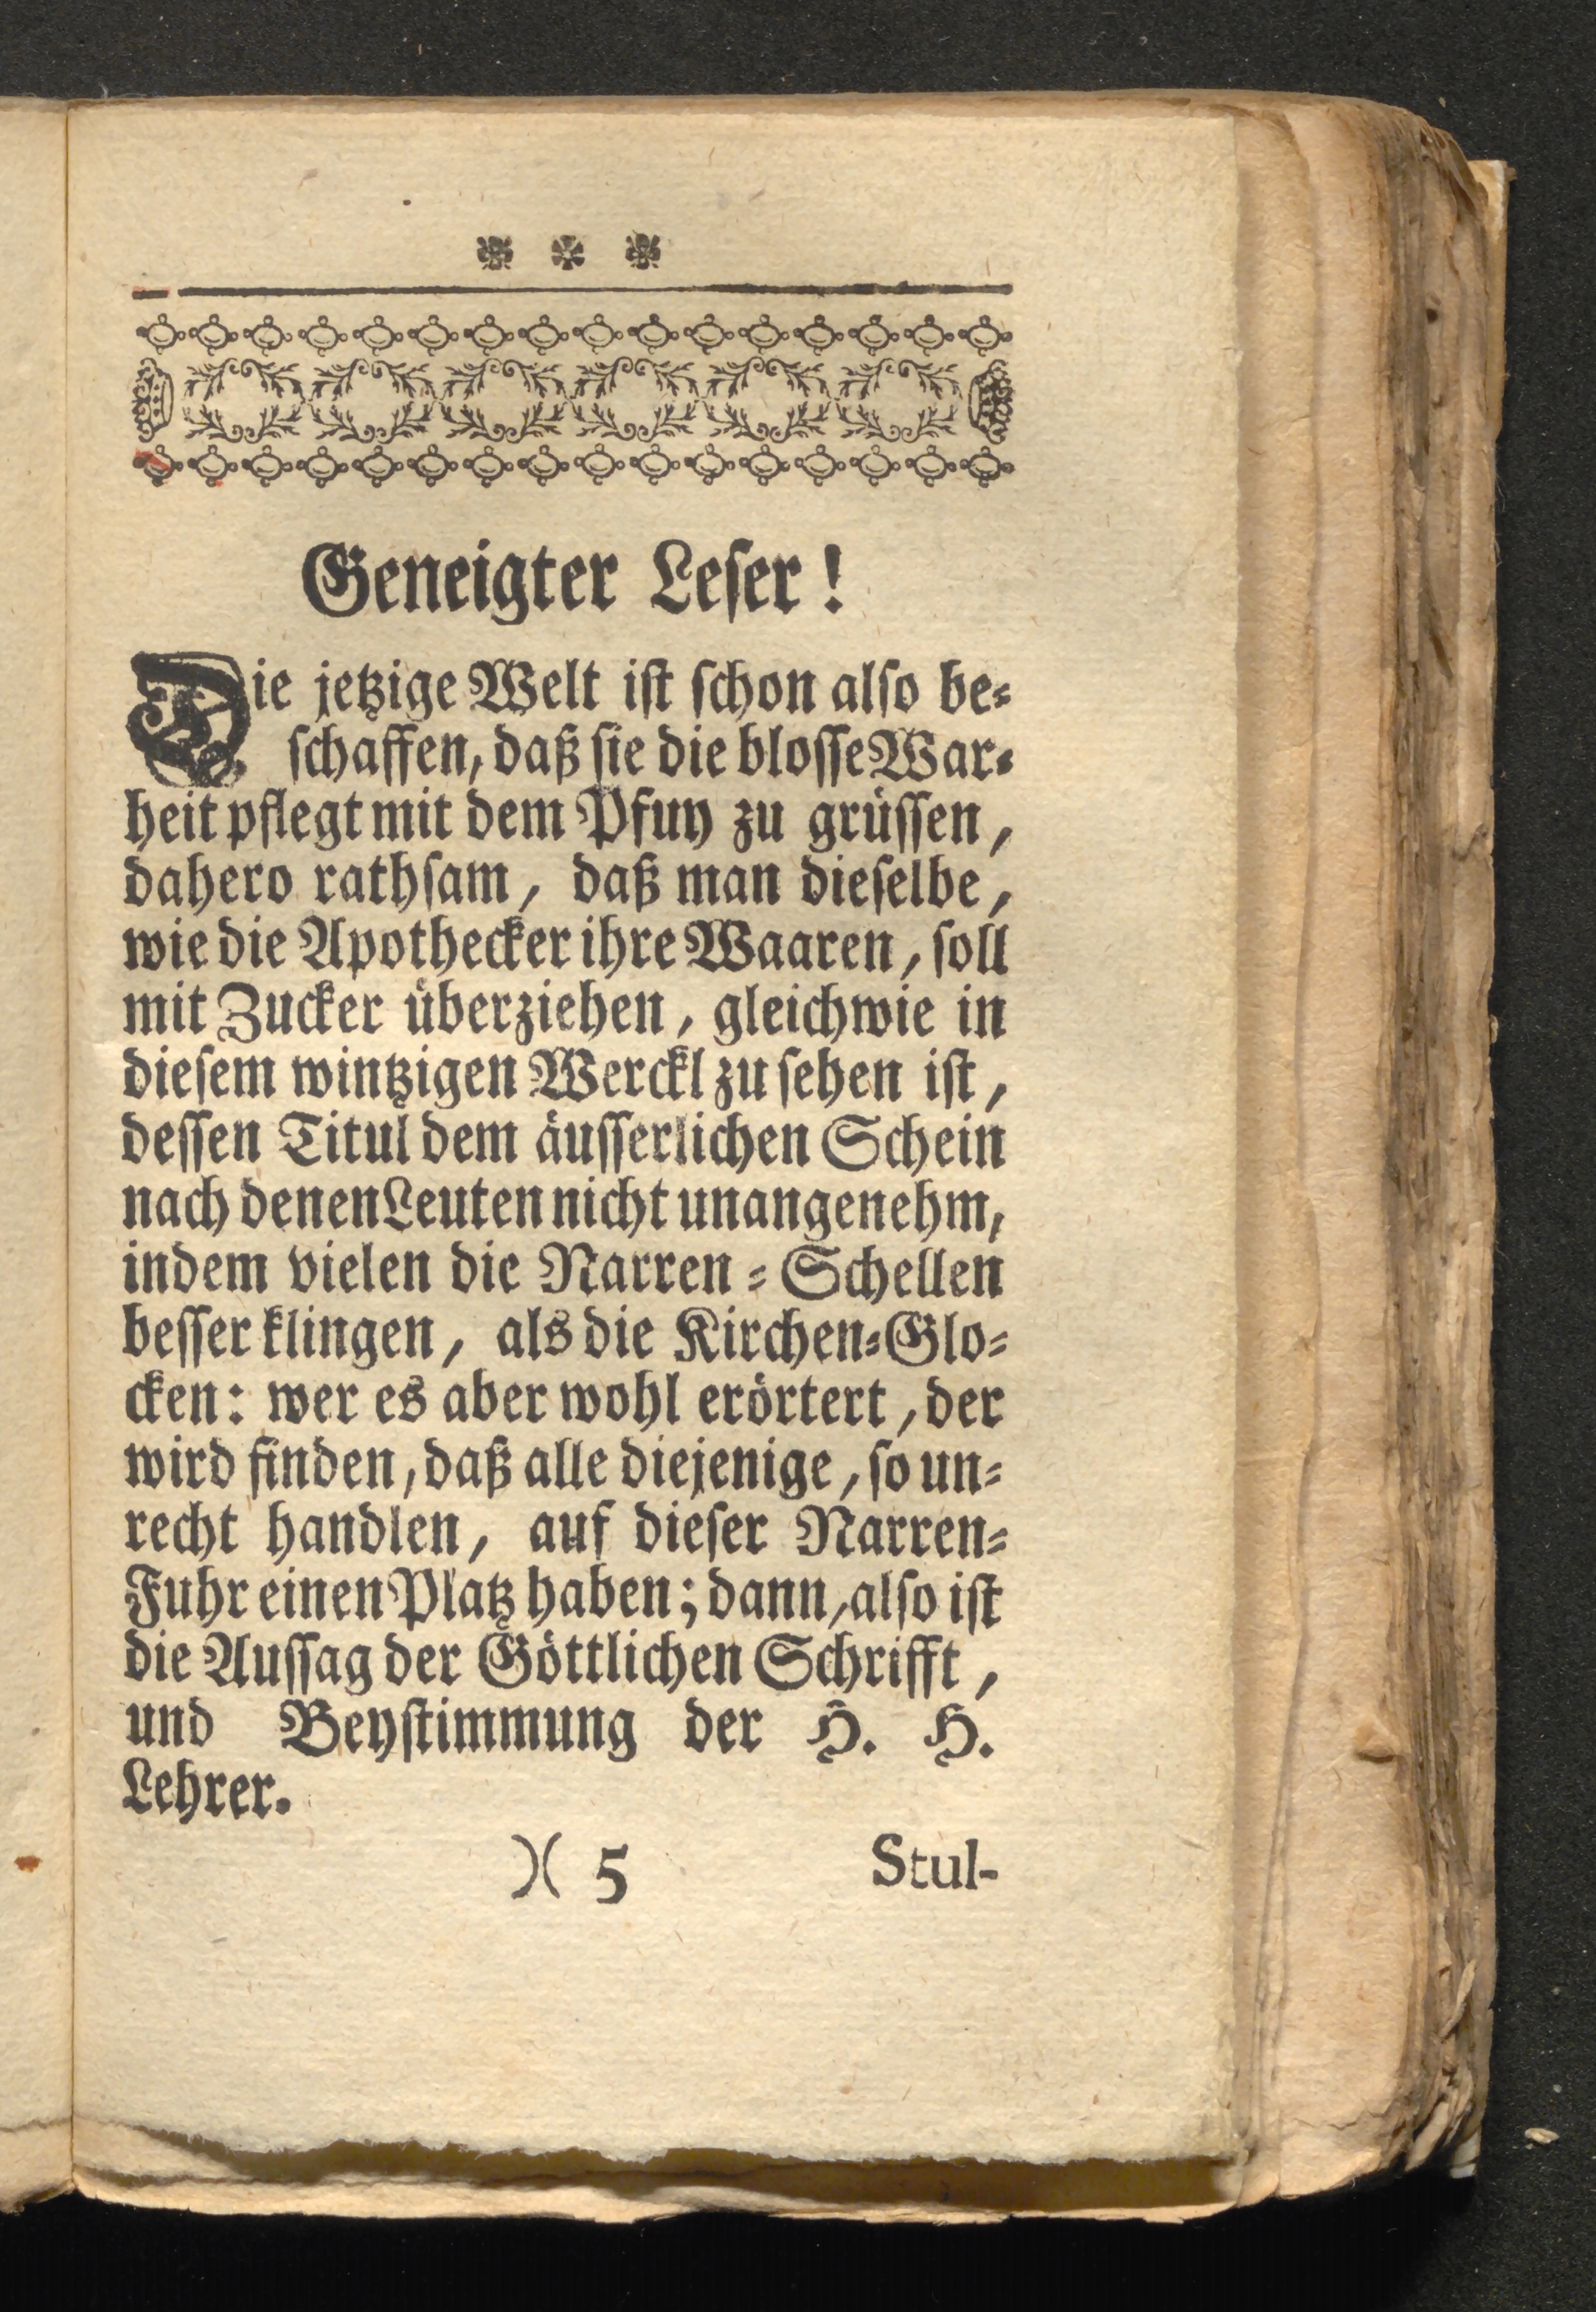 Geneigter Leser!
Die jetzige Welt ist schon also be-
schaffen, daß sie die blosse War-
heit pflegt mit dem Pfuy zu grüssen,
dahero rathsam, daß man dieselbe,
wie die Apothecker ihre Waaren, soll
mit Zucker überziehen, gleichwie in
diesem wintzigen Werckl zu sehen ist,
dessen Titul dem äusserlichen Schein
nach denen Leuten nicht unangenehm,
indem vielen die Narren-Schellen
besser klingen, als die Kirchen-Glo-
cken: wer es aber wohl erörtert, der
wird finden, daß alle diejenige, so un-
recht handlen, auf dieser Narren-
Fuhr einen Platz haben; dann, also ist
die Aussag der Göttlichen Schrifft,
und Beystimmung der H. H.
Lehrer.
)( 5 Stul-